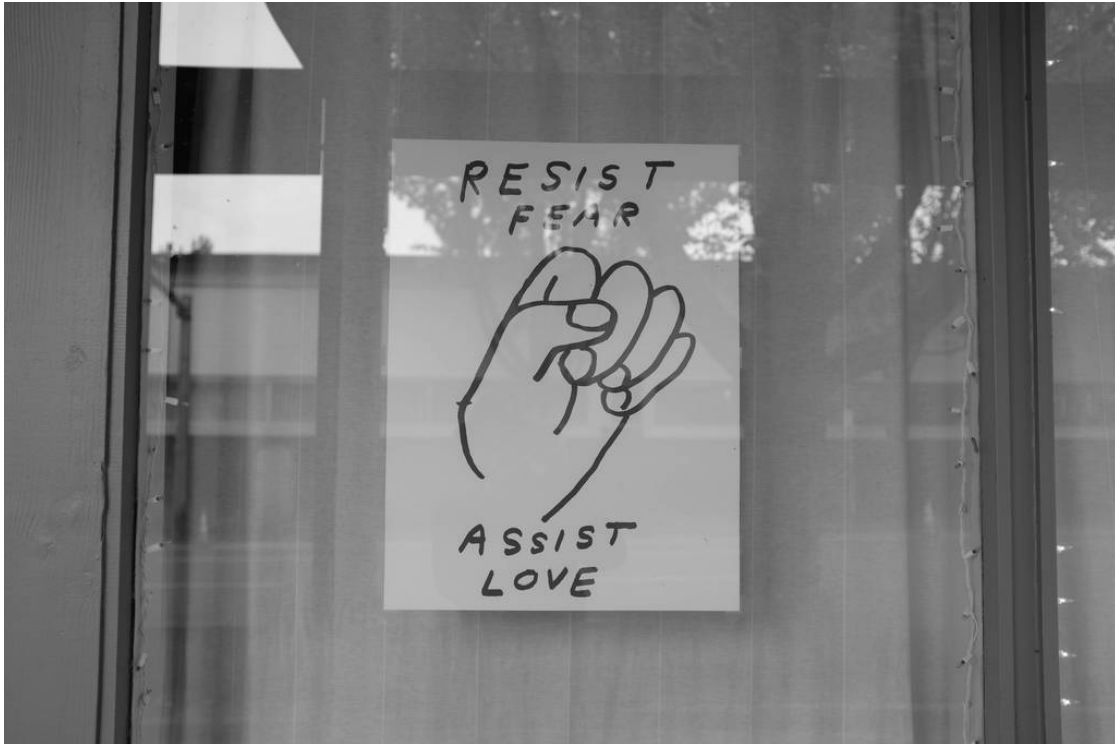 RESIST
FEAR
ASSIST
LOVE